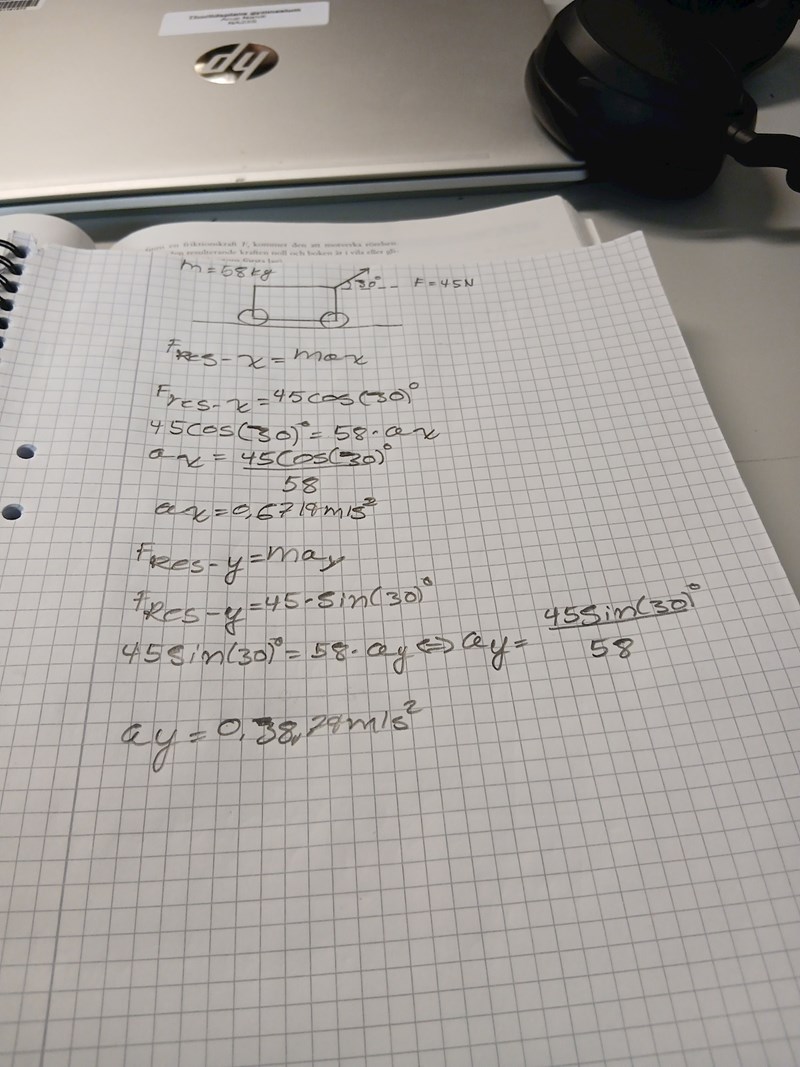 hp
en friktionskraft F, kommer den att motverka rörelsen
resulterande kraften noll och boken är i vila eller gli-
m = 58 kg
30°
F = 45 N
Fres-x = max
Fres-x = 45 cos(30)°
45cos(30)° = 58 · ax
ax = 45cos(30)°
58
ax = 0,6719 m/s²
FRes-y = may
FRes-y = 45 · Sin(30)°
45 Sin(30)° = 58 · ay ⇔ ay = 45Sin(30)°
58
ay = 0,38,79 m/s²